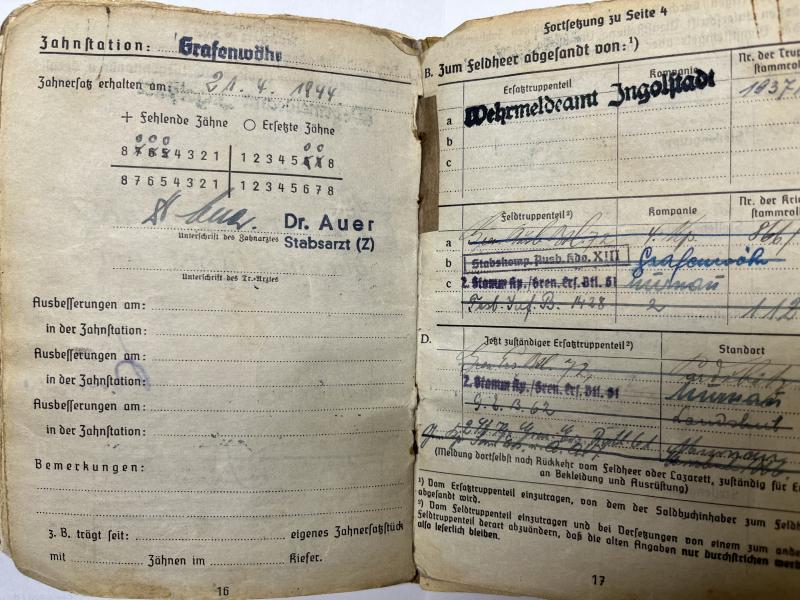 Zahnstation: Grafenwöhr
Zahnersatz erhalten am: 21.4.1944.
+ Fehlende Zähne ○ Ersetzte Zähne
8 7 6 5 4 3 2 1 1 2 3 4 5 6 7 8
8 7 6 5 4 3 2 1 1 2 3 4 5 6 7 8
Dr. Auer
Unterschrift des Zahnarztes Stabsarzt (Z)
Unterschrift des Tr.-Arztes
Ausbesserungen am:
in der Zahnstation:
Ausbesserungen am:
in der Zahnstation:
Ausbesserungen am:
in der Zahnstation:
Bemerkungen:
z. B. trägt seit: eigenes Zahnersatzstück
mit Zähnen im Kiefer.
16
Fortsetzung zu Seite 4
B. Zum Feldheer abgesandt von:¹)
Ersatztruppenteil Kompanie Nr. der
a Wehrmeldeamt Ingolstadt
b
c
Feldtruppenteil²) Kompanie Nr. der
a 866
b Stabskomp. Ausb. Kdo. XIII Grafenwöhr
c 2. Stamm Kp./Gren. Ers. Btl. 61 Murnau
Inf. B. 1428 2 112
D. Jetzt zuständiger Ersatztruppenteil²) Standort
2. Stamm Kp./Gren. Ers. Btl. 61 Murnau
G. E. B 62 Landshut
(Meldung dortselbst nach Rückkehr vom Feldheer oder Lazarett, zuständig für
an Bekleidung und Ausrüstung)
¹) Vom Ersatztruppenteil einzutragen, von dem der Soldbuchinhaber zum
abgesandt wird.
²) Vom Feldtruppenteil einzutragen und bei Versetzungen von einem zum
Feldtruppenteil derart abzuändern, daß die alten Angaben nur durchstrichen
also leserlich bleiben.
17